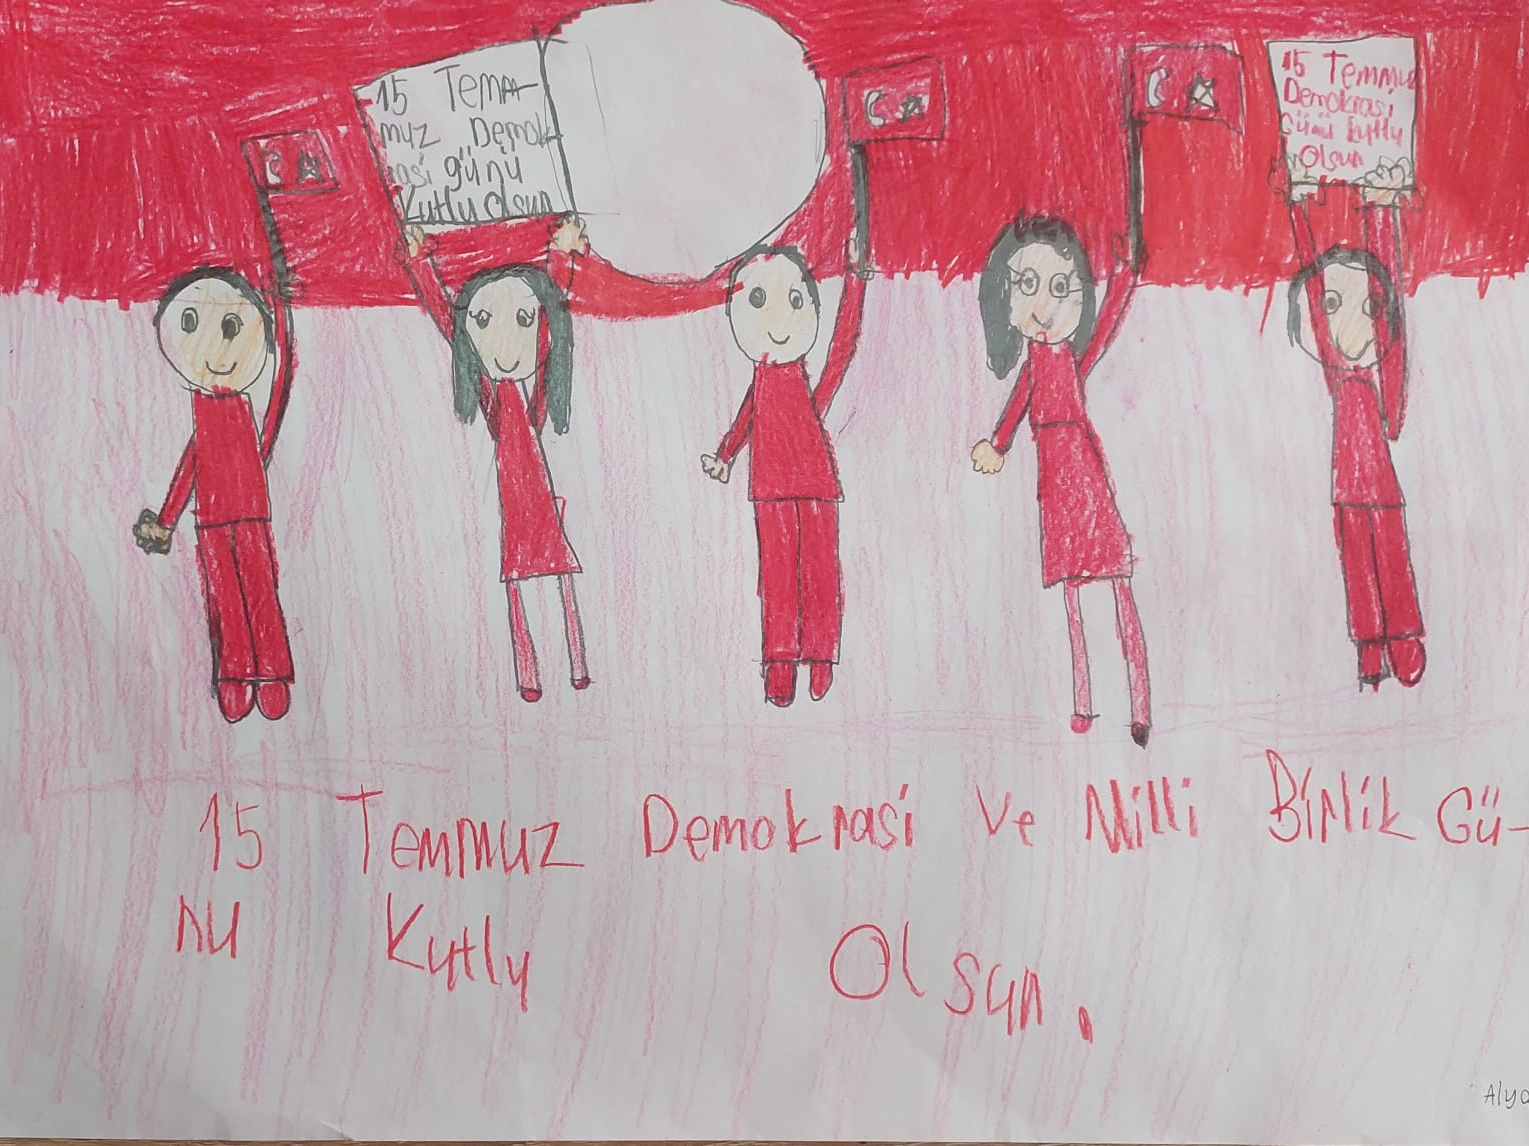 15 Temm-
muz Demok-
rasi günü
Kutlu olsun
15 Temmuz
Demokrasi
Günü kutlu
Olsun
15 Temmuz Demokrasi ve Milli Birlik Gü-
nü Kutlu Olsun.
Alya